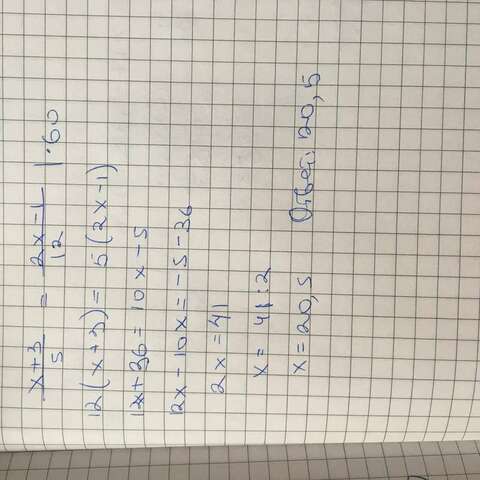 x+3/5 = 2x-1/12 |·60
12(x+3) = 5(2x-1)
12x+36 = 10x-5
12x-10x = -5-36
2x = 41
x = 41:2
x = 20,5 Ответ: 20,5